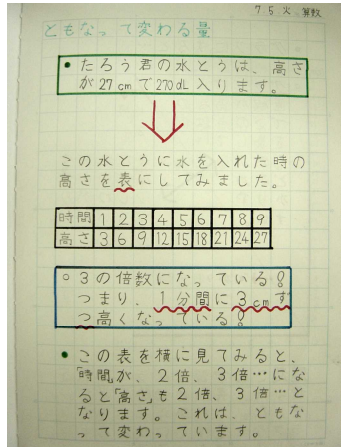 7 5 火 算数
ともなって変わる量
• たろう君の水とうは、高さ
が27cmで270dL入ります。
この水とうに水を入れた時の
高さを表にしてみました。
時間 1 2 3 4 5 6 7 8 9
高さ 3 6 9 12 15 18 21 24 27
○ 3の倍数になっている!
つまり、1分間に3cmず
つ高くなっている!
• この表を横に見てみると、
「時間」が、2倍、3倍…にな
ると「高さ」も2倍、3倍…と
なります。これは、ともな
って変わっています。